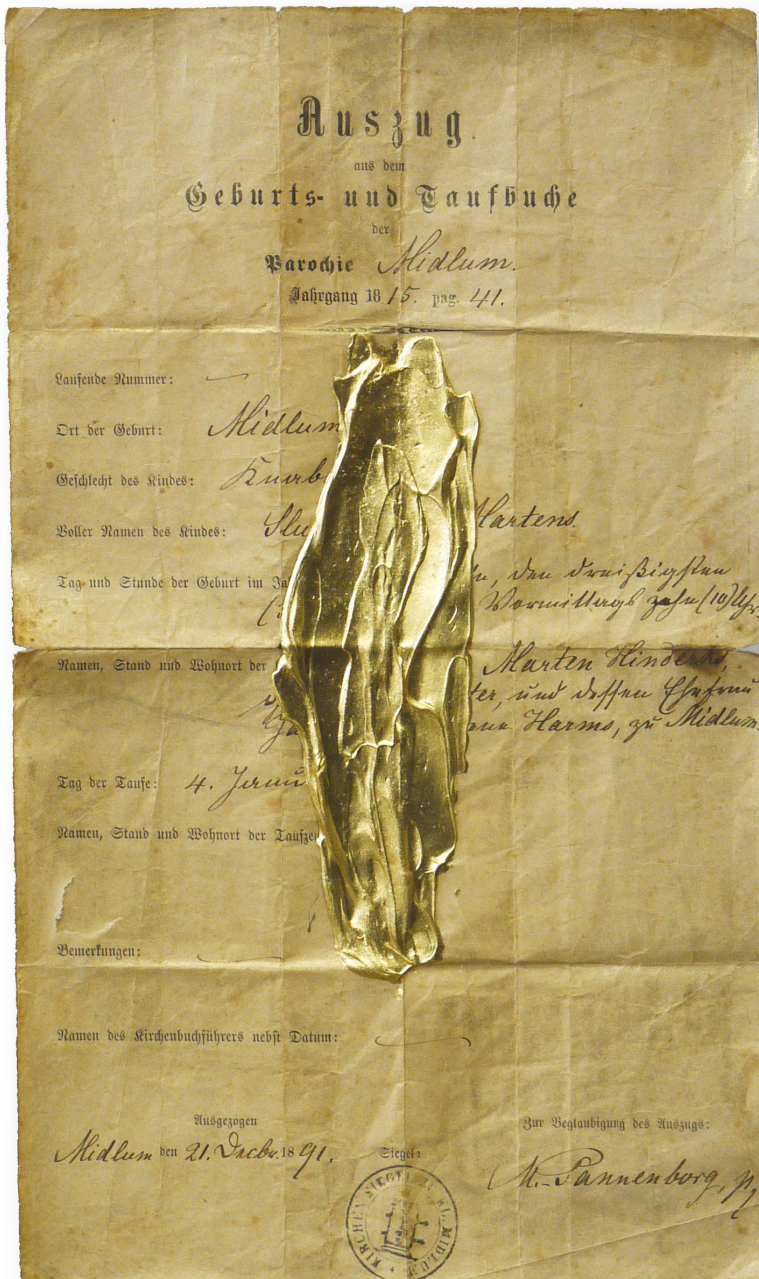 Auszug
aus dem
Geburts- und Taufbuche
der
Parochie Midlum.
Jahrgang 1815. pag. 41.
Laufende Nummer: —
Ort der Geburt: Midlum
Geschlecht des Kindes: Knab
Voller Namen des Kindes: Martens
Tag und Stunde der Geburt im Ja den dreißigsten
Vormittags zehn (10) Uhr.
Namen, Stand und Wohnort der Marten Hinderks,
ter, und dessen Ehefrau
Harms, zu Midlum.
Tag der Taufe: 4. Janu
Namen, Stand und Wohnort der Taufze
Bemerkungen: —
Namen des Kirchenbuchführers nebst Datum: —
Ausgezogen
Midlum den 21. Decbr. 1891.
Siegel:
Zur Beglaubigung des Auszugs:
M. Pannenborg,
KIRCHEN SIEGEL MIDLUM